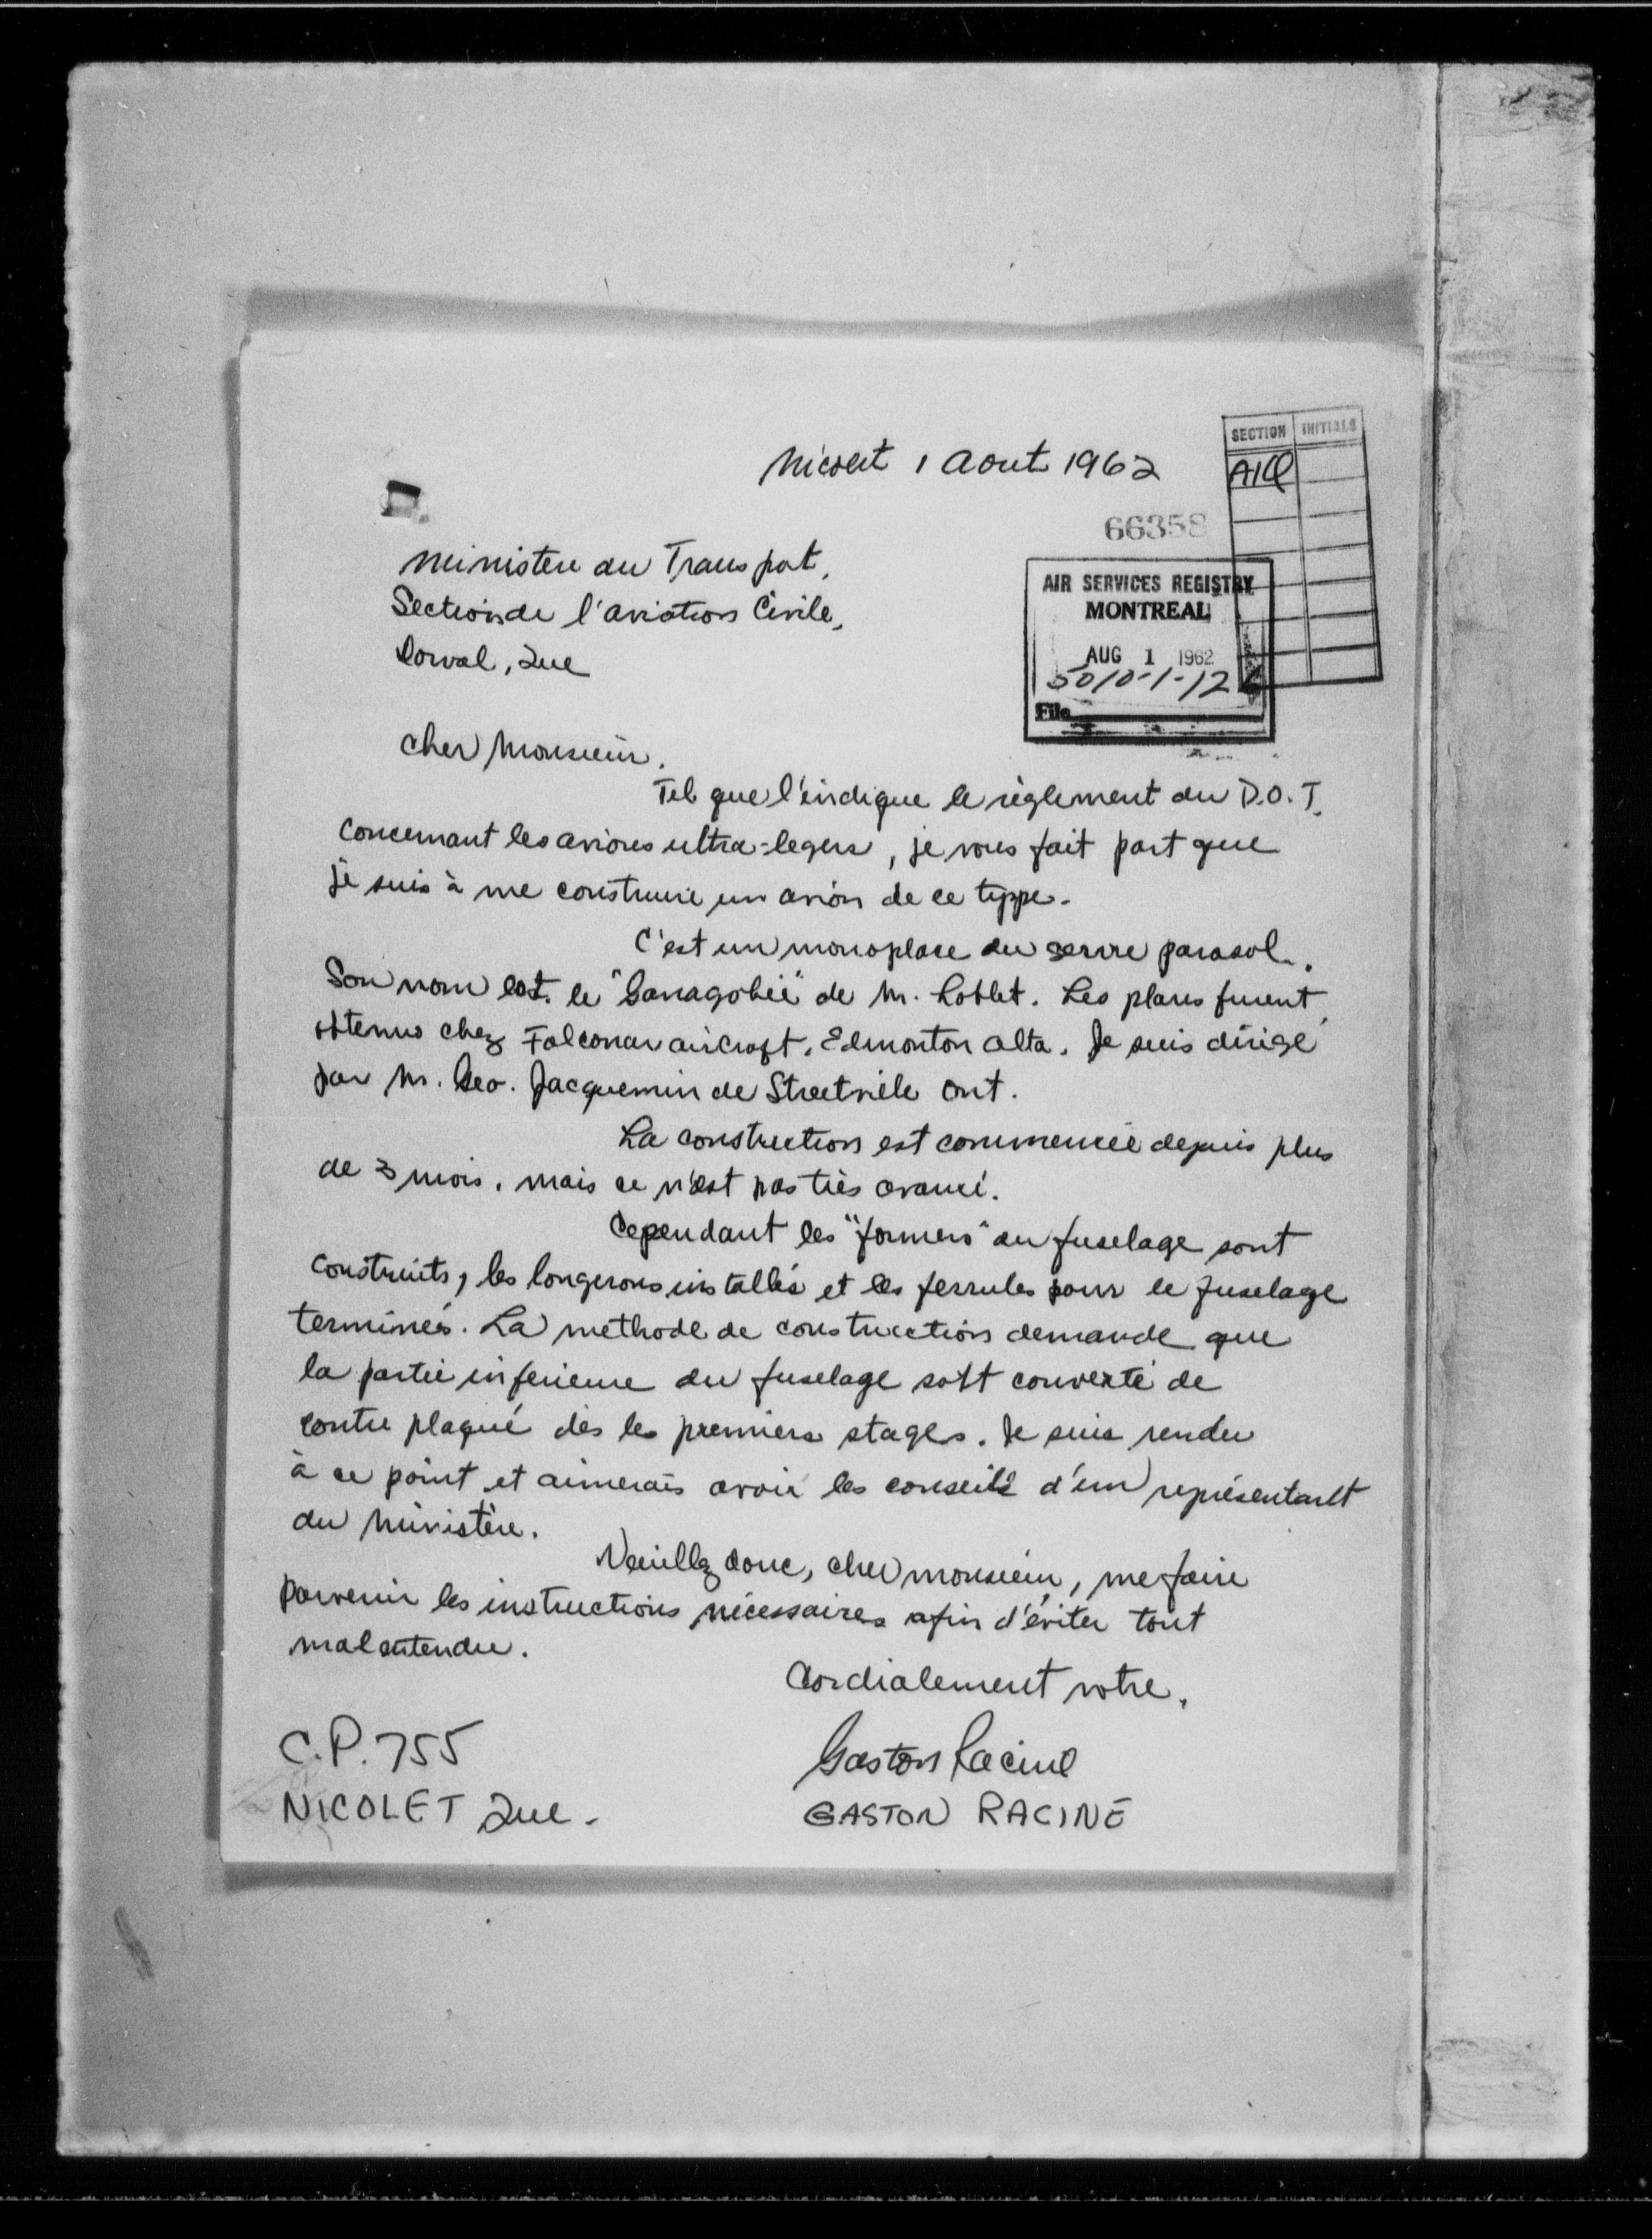 Nicolet 1 Aout 1962
SECTION INITIALS
66358
Ministere du Transport,
Section de l'aviation Civile,
Dorval, Que
AIR SERVICES REGISTRY
MONTREAL
AUG 1 1962
5010-1-12
File
Cher Monsieur.
Tel que l'indique le règlement du D.O.T.
concernant les avions ultra-legers, je vous fait part que
je suis à me construire un avion de ce type.
C'est un monoplace du genre parasol.
Son nom est le "Ganagobie" de M. Lobet. Les plans furent
obtenus chez Falconar aircraft, Edmonton Alta. Je suis dirigé
par M. Geo. Jacquemin de Streetville Ont.
La construction est commencée depuis plus
de 3 mois, mais ce n'est pas très avancé.
Cependant les "formers" du fuselage sont
construits, les longerons installés et les ferrules pour le fuselage
terminés. La methode de construction demande que
la partie inferieure du fuselage soit converte de
contre plaqué dès les premiers stages. Je suis rendu
à ce point et aimerais avoir les conseils d'un représentant
du Ministère.
Veuillez donc, cher monsieur, me faire
parvenir les instructions nécessaires afin d'éviter tout
malentendu.
Cordialement votre,
C.P. 755
Gaston Racine
NICOLET Que.
GASTON RACINE